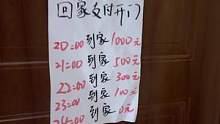 回家支付开门
20=00到家1000元
21=00到家500元
22=00到家300元
23=00到家100元
24=00到家0元